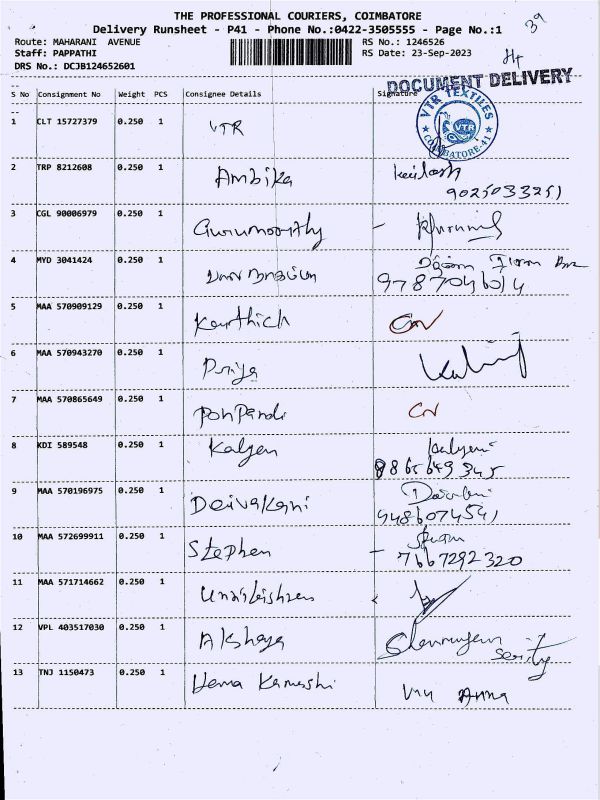 THE PROFESSIONAL COURIERS, COIMBATORE
39
Delivery Runsheet - P41 - Phone No.:0422-3505555 - Page No.:1
Route: MAHARANI AVENUE RS No.: 1246526
Staff: PAPPATHI RS Date: 23-Sep-2023
DRS No.: DCJB124652601
DOCUMENT DELIVERY
S No Consignment No Weight PCS Consignee Details Signature
VTR TEXTILES
VTR
COIMBATORE-41
1 CLT 15727379 0.250 1 VTR
2 TRP 8212608 0.250 1 Ambika
9025033251
3 CGL 90006979 0.250 1 Gurumoorthy
4 MYD 3041424 0.250 1
9787046014
5 MAA 570909129 0.250 1 Karthick
6 MAA 570943270 0.250 1 Priya
7 MAA 570865649 0.250 1 PonPandi
8 KDI 589548 0.250 1 Kalyan
8865649345
9 MAA 570196975 0.250 1 Deivakani
9486074541
10 MAA 572699911 0.250 1 Stephen
7667292320
11 MAA 571714662 0.250 1
12 VPL 403517030 0.250 1 Akshaya
13 TNJ 1150473 0.250 1 Hema
Anna